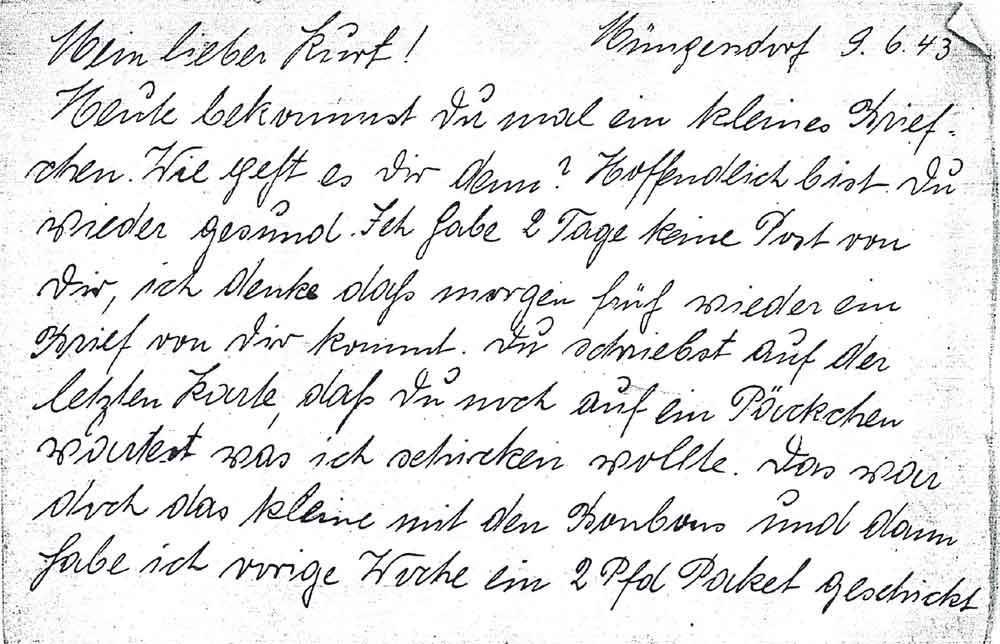 Mein lieber Kurt! Müngendorf 9.6.43
Heute bekommst Du mal ein kleines Brief-
chen. Wie geht es Dir denn? Hoffendlich bist Du
wieder gesund. Ich habe 2 Tage keine Post von
Dir, ich denke daß morgen früh wieder ein
Brief von Dir kommt. Du schriebst auf der
letzten Karte, daß Du noch auf ein Päckchen
wartest was ich schicken wollte. Das war
doch das kleine mit den Bonbons und dann
habe ich vorige Woche ein 2 Pfd Paket geschickt